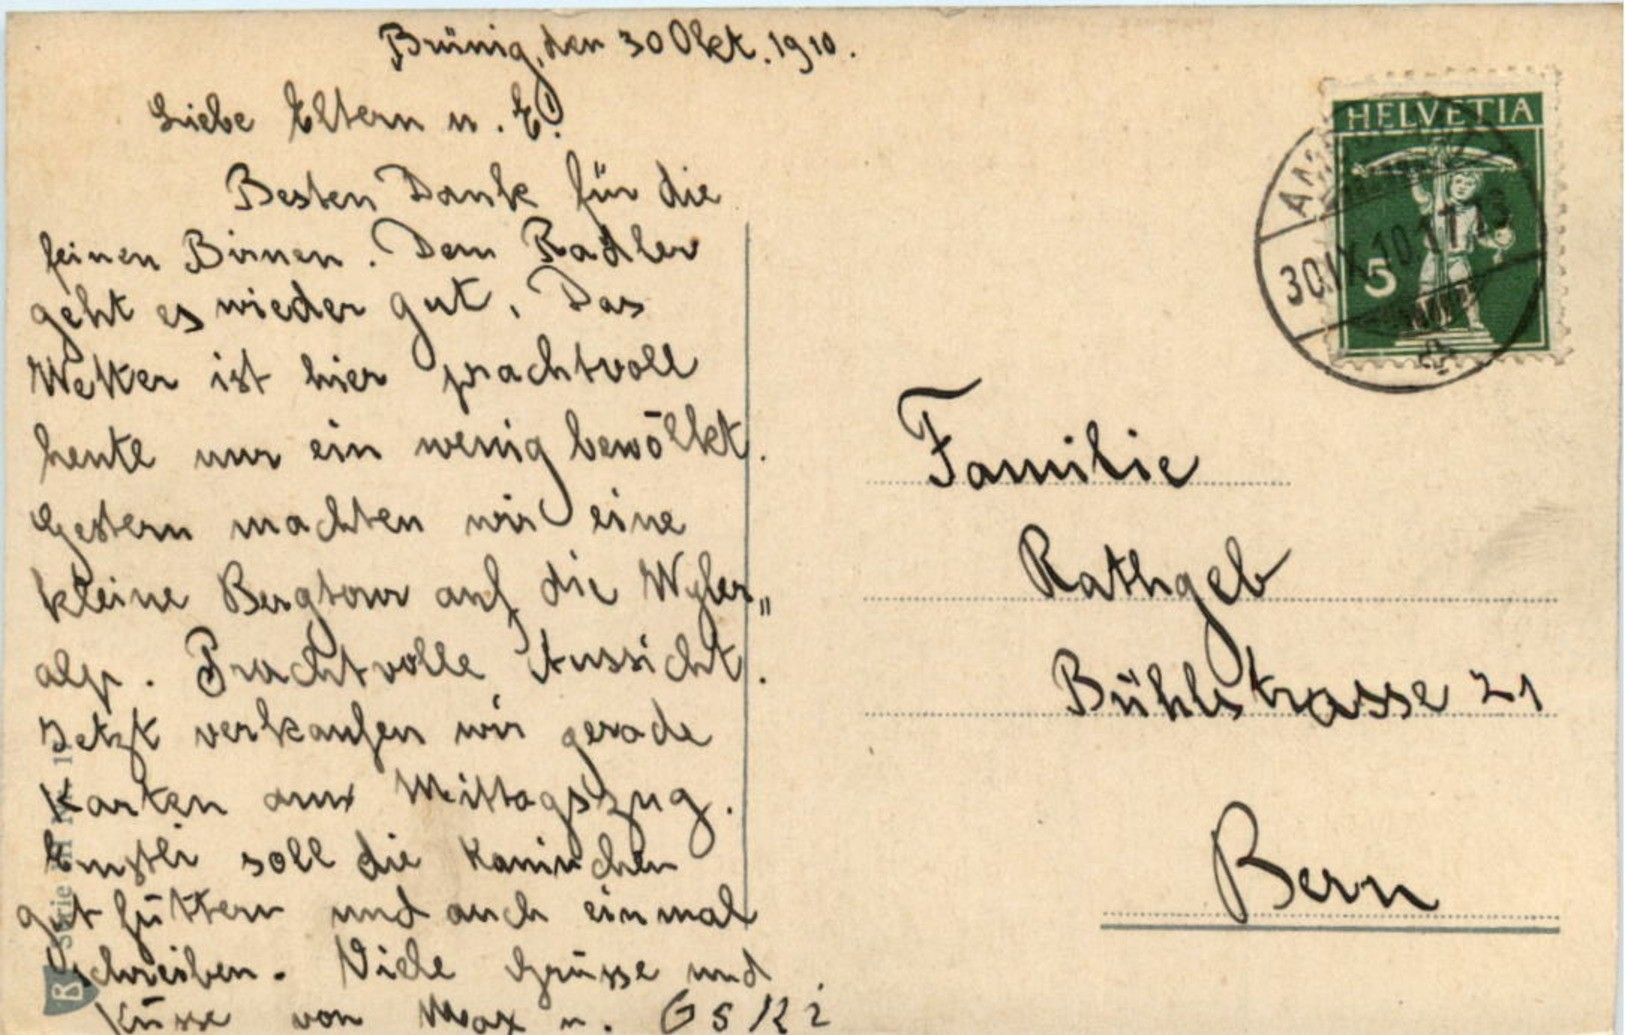 Brünig, den 30 Okt. 1910.
Liebe Eltern u. E!
Besten Dank für die
feinen Birnen. Dem Radler
geht es wieder gut. Das
Wetter ist hier prachtvoll
heute nur ein wenig bewölkt.
Gestern machten wir eine
kleine Bergtour auf die Wyler„
alp. Prachtvolle Aussicht.
Jetzt verkaufen wir gerade
Karten am Mittagszug.
Ernstli soll die Kaninchen
gut füttern und auch einmal
schreiben. Viele Grüsse und
Küsse von Max u.
HELVETIA
5
Familie
Rathgeb
Bühlstrasse 21
Bern